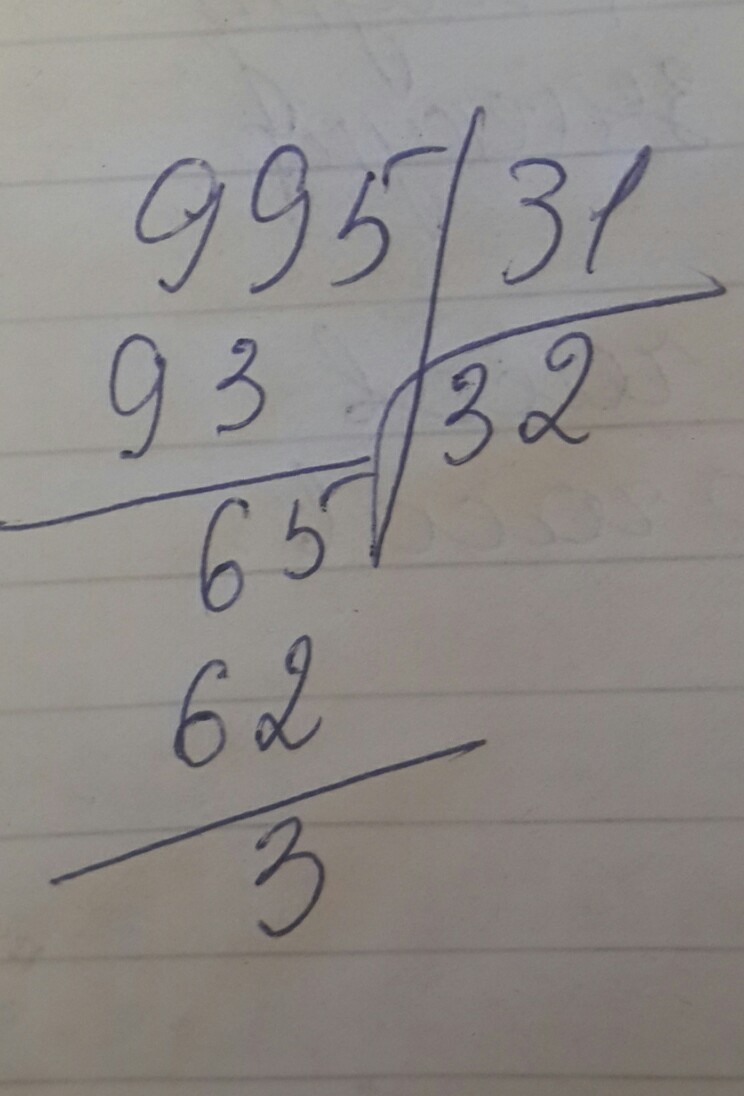 995 31
93 32
65
62
3